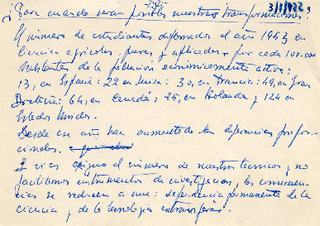 ¿Para cuando seran posibles nuestras transformaciones.
El número de estudiantes diplomados el año 1963 en
ciencias agrícolas, puras y aplicadas por cada 100.000
habitantes de la población económicamente activa:
13, en España; 22 en Suiza; 30, en Francia; 49, en Gran
Bretaña; 64, en Canadá; 75, en Holanda, y 124 en
Estados Unidos.
Desde ese año han aumentado las diferencias propor-
cionales.
Si es exiguo el número de nuestros técnicos, y no
facilitamos instrumentos de investigación, las consecuen-
cias se reducen a una: dependencia permanente de la
ciencia y de la tecnología extranjeras.